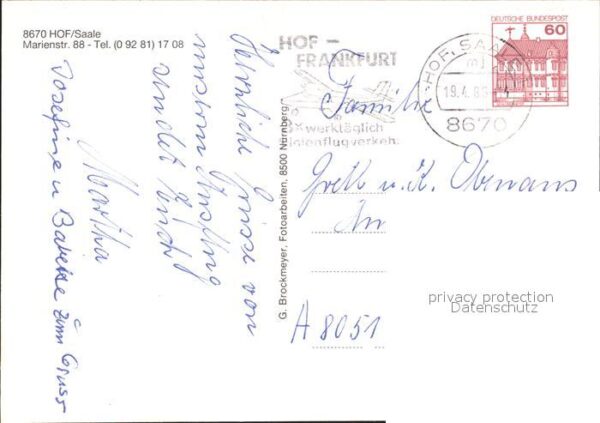 8670 HOF/Saale
Marienstr. 88 - Tel. (0 92 81) 17 08
Herzliche Grüsse von
unserem Ausflug
sendet Euch
Martha
Josefine u Babette zum Gruss
G. Brockmeyer, Fotoarbeiten, 8500 Nürnberg
HOF -
FRANKFURT
werktäglich
Linienflugverkehr
HOF, SAALE
19.4.83
8670
DEUTSCHE BUNDESPOST
60
Familie
Gretl u. K.
A 8051
privacy protection
Datenschutz